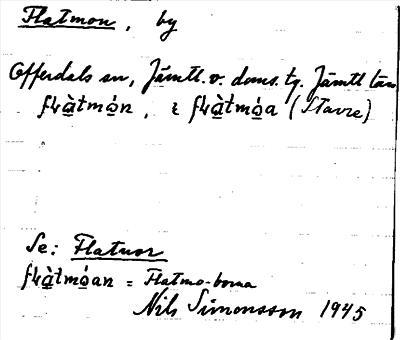 Flatmon, by
Offerdals sn, Jämtl. v. doms. tg. Jämtl län
flὰ̲tmó̲n, ɩ flὰ̲tmó̲a (Stavre)
Se: Flatnor
flὰ̲tmó̲an = Flatmo-borna
Nils Simonsson 1945